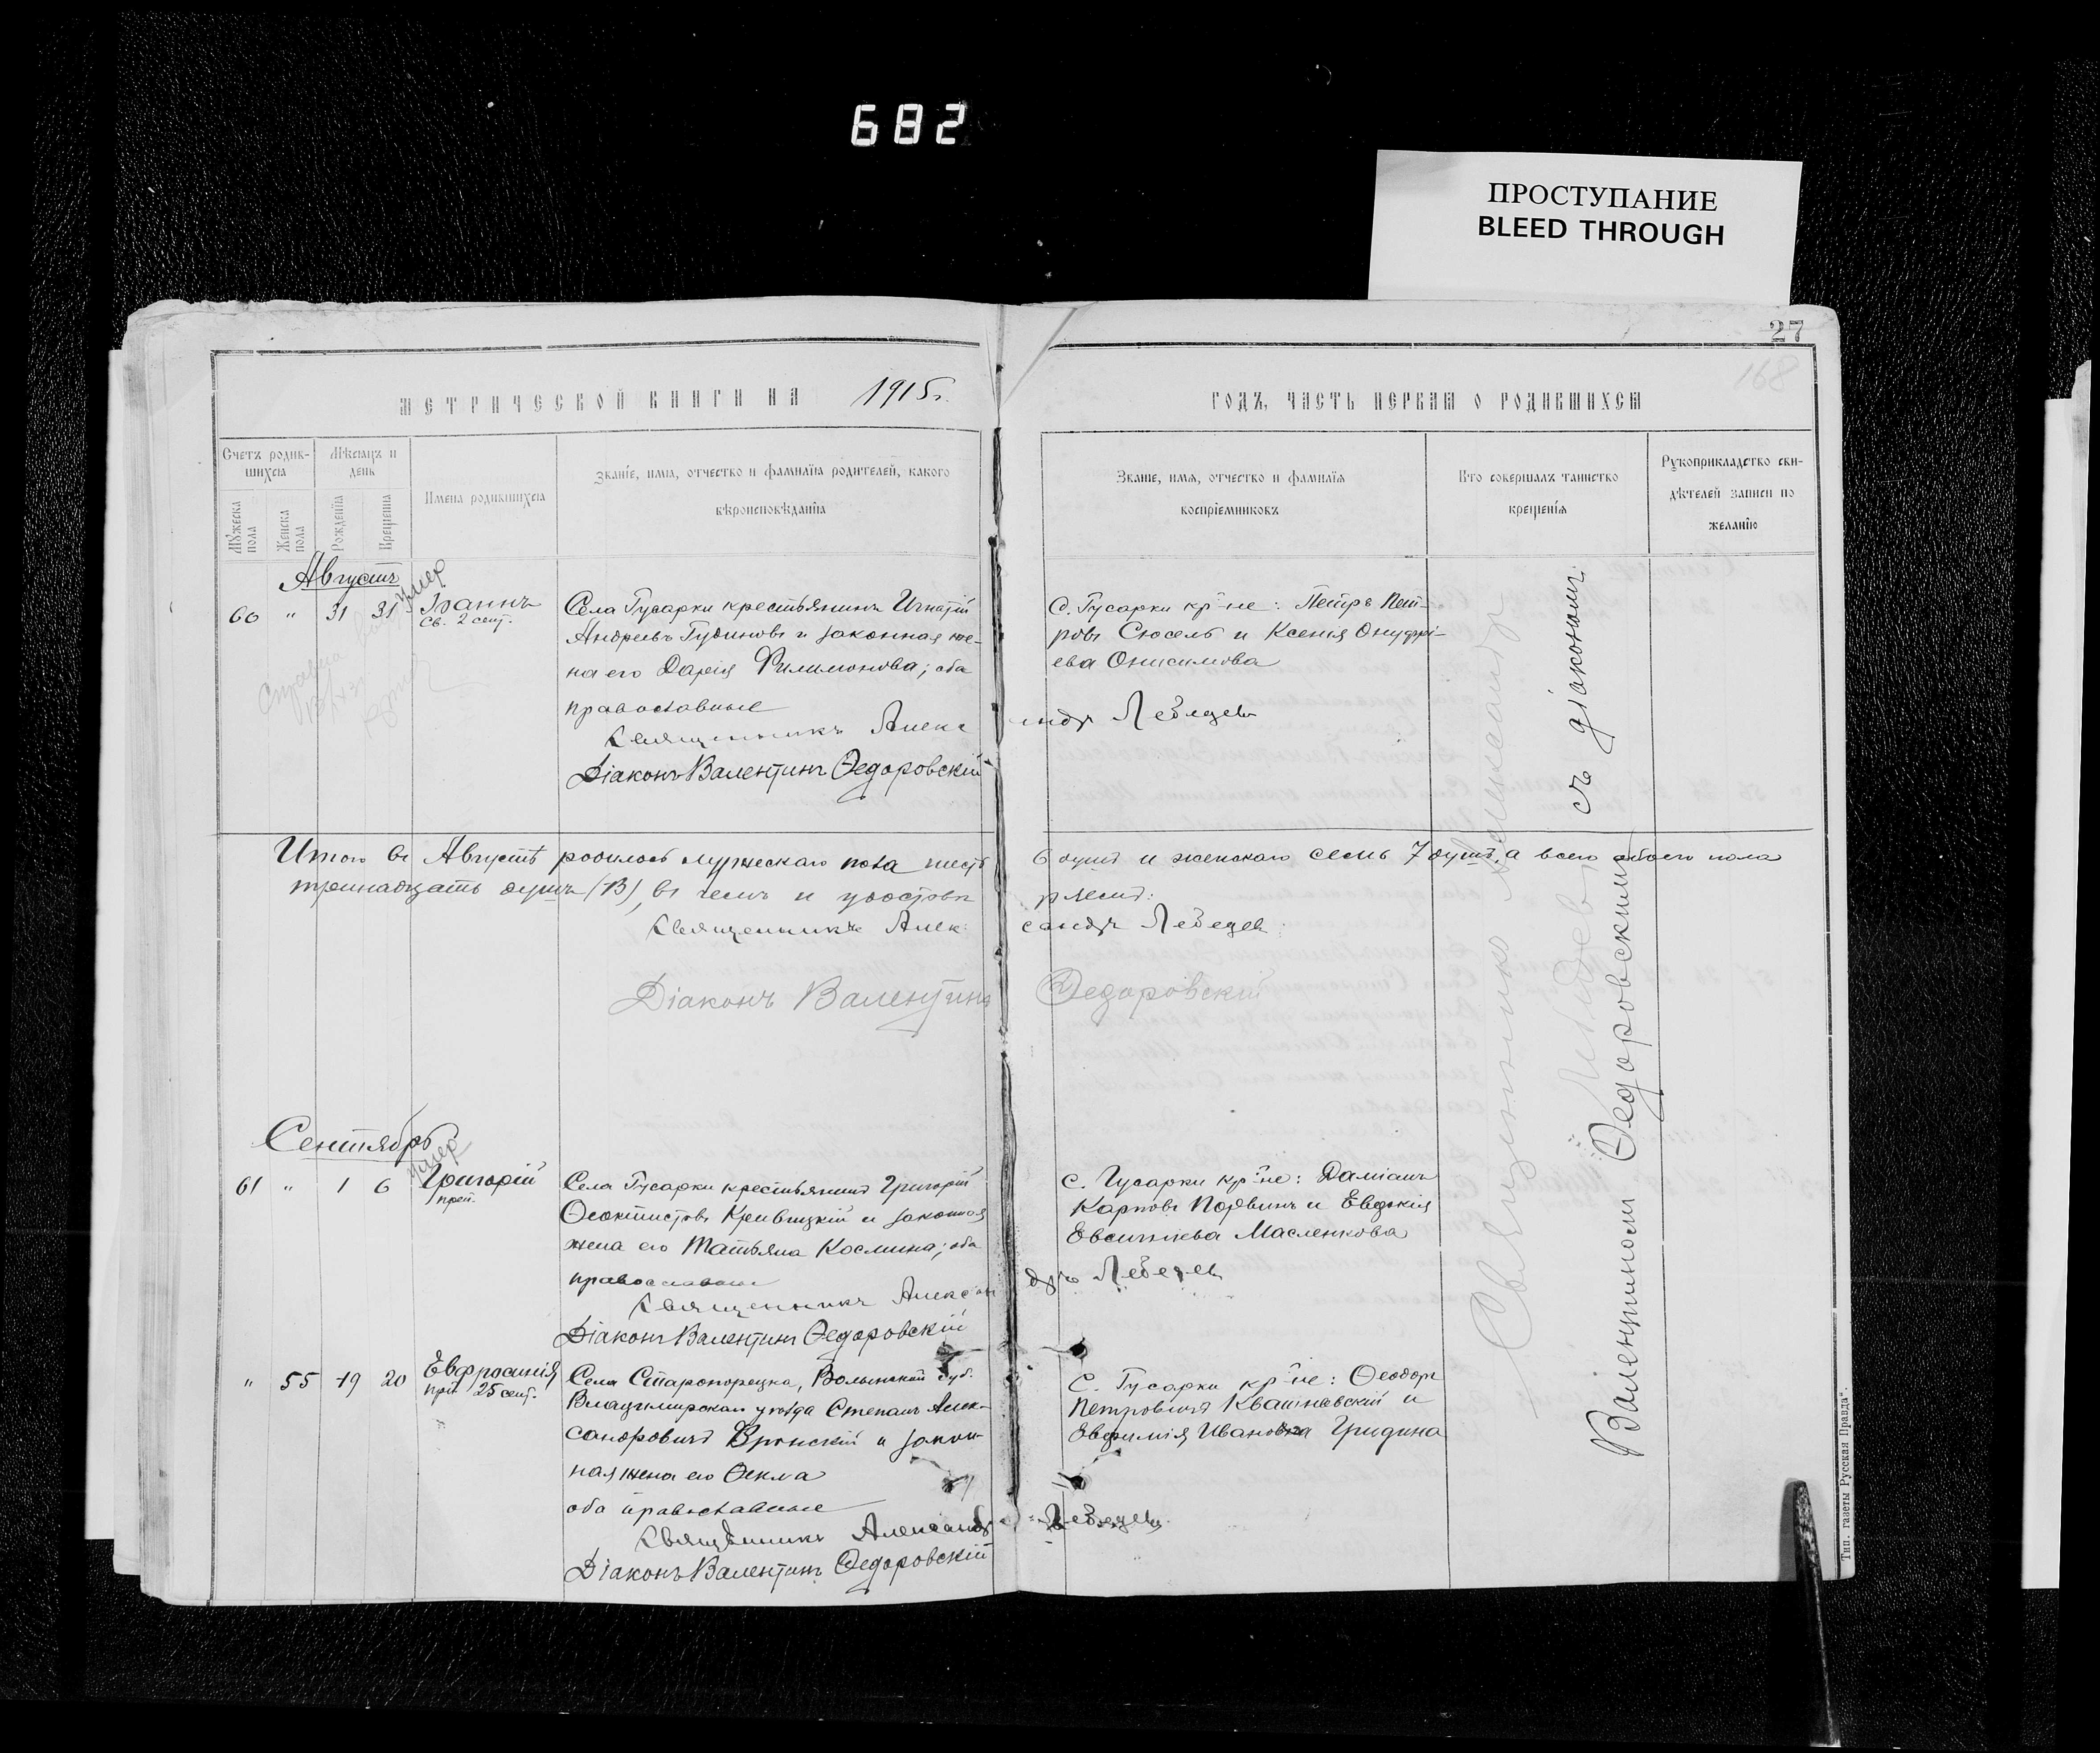 682
ПРОСТУПАНИЕ
BLEED THROUGH
27
168
МЕТРИЧЕСКОЙ КНИГИ НА 1915 г.
ГОДЪ, ЧАСТЬ ПЕРВАЯ О РОДИВШИХСЯ
Счетъ родив-
шихся
Мѣсяцъ и
день
Мужеска
пола
Женска
пола
Рожденія
Крещенія
Имена родившихся
Званіе, имя, отчество и фамилія родителей, какого
вѣроисповѣданія
Званіе, имя, отчество и фамилія
воспріемниковъ
Кто совершалъ таинство
крещенія
Рукоприкладство сви-
дѣтелей записи по
желанію
Августъ
умер
60 " 31 31 Іоаннъ
Св. 2 сент.
Села Гусарки крестьянинъ Игнатій
Андреевъ Гудиновъ и законная же-
на его Дарія Филимонова; оба
православные
Священникъ Александръ Лебедевъ
Діаконъ Валентинъ Ѳедоровскій
С. Гусарки кр-не: Петръ Пет-
ровъ Сюсель и Ксенія Онуфрі-
ева Онисимова
Итого въ Августѣ родилось мужескаго пола шесть 6 душъ и женскаго семь 7 душъ, а всего обоего пола
тринадцать душъ (13), въ чемъ и удостовѣряемъ:
Священникъ Александръ Лебедев
Діаконъ Валентинъ Ѳедоровскій
Сентябрь
умер
61 " 1 6 Григорій
преп.
Села Гусарки крестьянинъ Григорій
Ѳеоктистовъ Кривицкій и законная
жена его Татьяна Космина; оба
православные
Священникъ Александръ Лебедев
Діаконъ Валентинъ Ѳедоровскій
С. Гусарки кр-не: Даміанъ
Карповъ и Евдокія
Евсигніева Масленкова
" 55 19 20 Евфросинія
преп. 25 сент.
Села Старопорецка, Волынской губ.
Владимирскаго уѣзда Степанъ Алек-
сандровичъ Вронскій и закон-
ная жена его Ѳекла
оба православные
Священникъ Александръ Лебедевъ
Діаконъ Валентинъ Ѳедоровскій
С. Гусарки кр-не: Ѳеодоръ
Петровичъ Квашневскій и
Евфимія Ивановна Гридина
Священникъ Александръ
Лебедевъ
съ діакономъ
Валентиномъ Ѳедоровскимъ
Тип. газеты „Русская Правда".